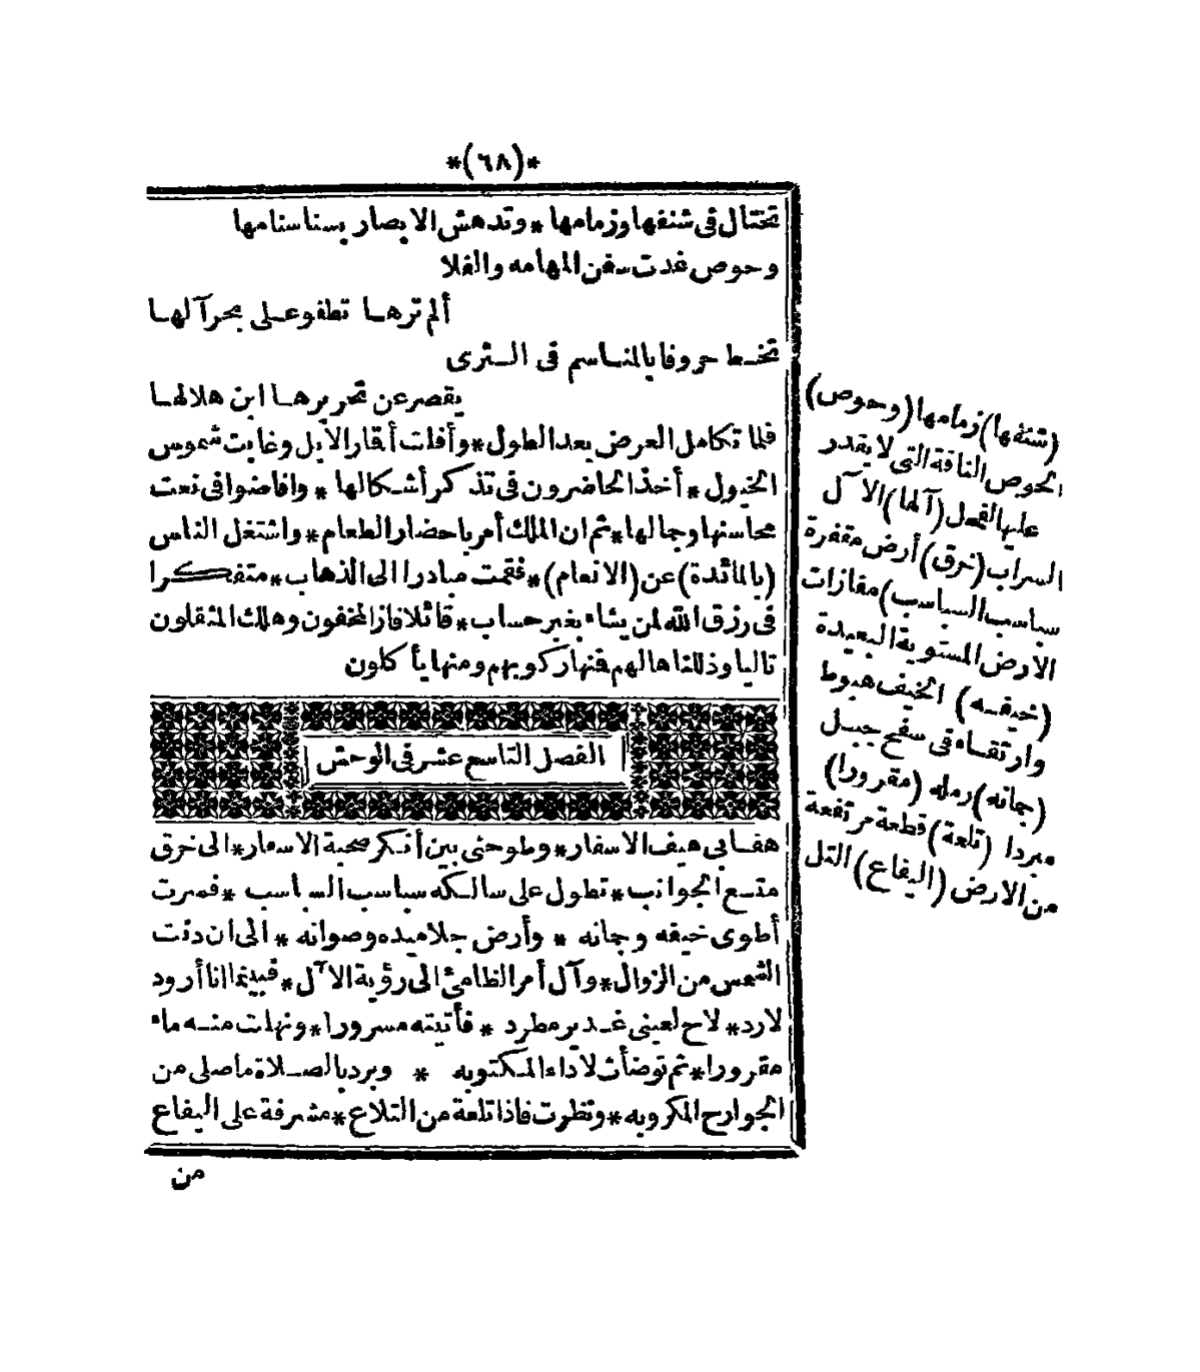 *(٦٨)*
تختال فى شنفها وزمامها * وتدهش الابصار بسنا سنامها
وحوص غدت سفن المهامه والفلا
ألم ترها تطفو على بحر آلها
تخط حروفا بالمناسم فى الثرى
يقصر عن تحريرها ابن هلالها
فلما تكامل العرض بعد الطول * وأفلت أقمار الابل وغابت شموس
الخيول * أخذ الحاضرون فى تذكر أشكالها * وافاضوا فى نعت
محاسنها وجمالها * ثم ان الملك أمر باحضار الطعام * واشتغل الناس
(بالمائدة) عن (الانعام) * فقمت مبادرا الى الذهاب * متفكرا
فى رزق الله لمن يشاء بغير حساب * قائلا فاز المخفون وهلك المثقلون
تاليا وذللناها لهم فمنها ركوبهم ومنها يأكلون
الفصل التاسع عشر فى الوحش
هفا بى هيف الاسفار * وطوحنى بين أنكر صحبة الاسمار * الى خرق
متسع الجوانب * تطول على سالكه سباسب السباسب * فصرت
أطوى خيفه وجمانه * وأرض جلاميده وصوانه * الى ان دنت
الشمس من الزوال * وآل أمر الظامئ الى رؤية الآل * فبينما انا أرود
لارد * لاح لعينى غدير مطرد * فأتيته مسرورا * ونهلت منه ماء
مقرورا * ثم توضأت لاداء المكتوبه * وبرد بالصلاة ما صلى من
الجوارح المكروبه * ونظرت فاذا تلعة من التلاع * مشرفة على اليفاع
من
(شنفها) زمامها (وحوص)
الحوص الناقة التى لا يقدر
عليها الفحل (آلها) الآل
السراب (خرق) أرض مقفرة
سباسب السباسب) مفازات
الارض المستوية البعيدة
(خيفه) الخيف هبوط
وارتقاء فى سفح جبل
(جمانه) رمله (مقرورا)
مبردا (تلعة) قطعة مرتفعة
من الارض (اليفاع) التل